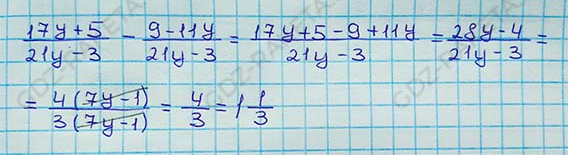 (17y+5)/(21y-3) - (9-11y)/(21y-3) = (17y+5-9+11y)/(21y-3) = (28y-4)/(21y-3) =
= (4(7y-1))/(3(7y-1)) = 4/3 = 1 1/3